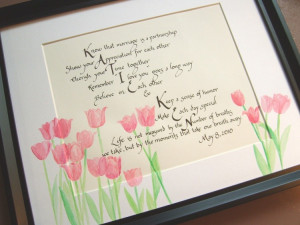 Know that marriage is a partnership
Show your Appreciation for each other
Cherish your Time together
Remember I love you goes a long way
Believe in Each other
&
Keep a sense of honor
Make Each day special
Life is not measured by the Number of breaths
we take, but by the moments that take our breath away
May 8, 2010